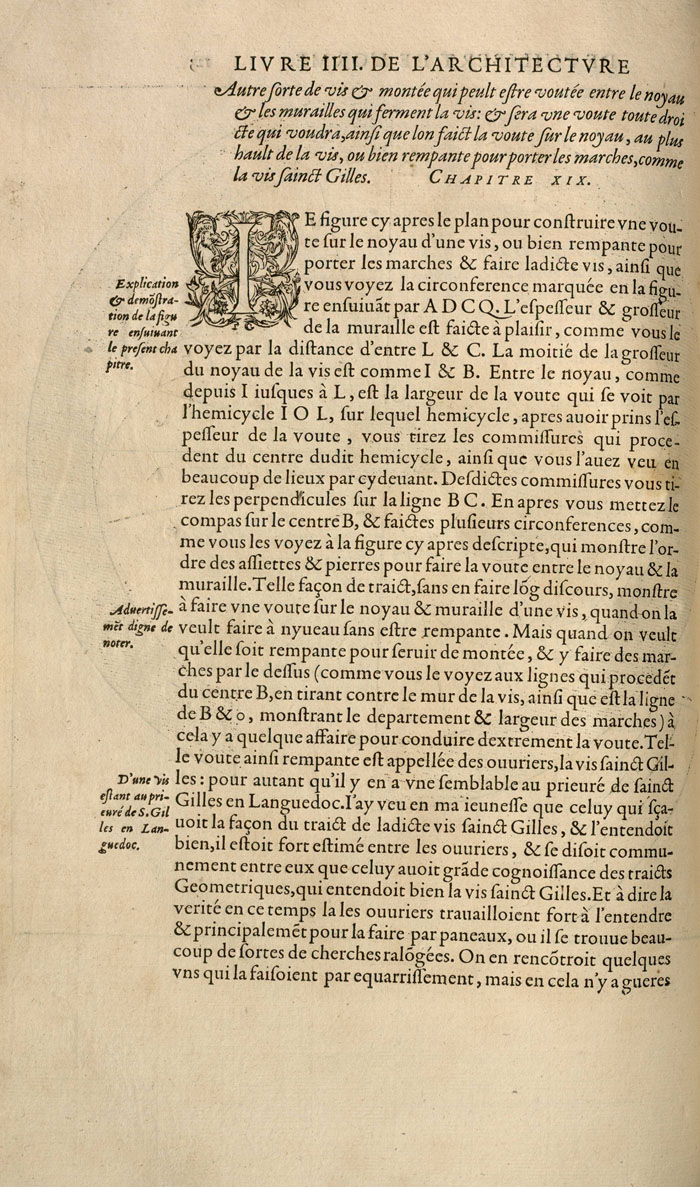 LIVRE IIII. DE L'ARCHITECTVRE
Autre ſorte de vis & montée qui peult eſtre voutée entre le noyau
& les murailles qui ferment la vis: & ſera vne voute toute droi
cte qui voudra, ainſi que lon faict la voute ſur le noyau, au plus
hault de la vis, ou bien rempante pour porter les marches, comme
la vis ſainct Gilles. CHAPITRE XIX.
IE figure cy apres le plan pour conſtruire vne vou-
te ſur le noyau d'une vis, ou bien rempante pour
porter les marches & faire ladicte vis, ainſi que
vous voyez la circonference marquée en la figu-
re enſuiuāt par A D C Q. L'eſpeſſeur & groſſeur
de la muraille eſt faicte à plaiſir, comme vous le
voyez par la diſtance d'entre L & C. La moitié de la groſſeur
du noyau de la vis eſt comme I & B. Entre le noyau, comme
depuis I iuſques à L, eſt la largeur de la voute qui ſe voit par
l'hemicycle I O L, ſur lequel hemicycle, apres auoir prins l'eſ-
peſſeur de la voute, vous tirez les commiſſures qui proce-
dent du centre dudit hemicycle, ainſi que vous l'auez veu en
beaucoup de lieux par cy deuant. Deſdictes commiſſures vous ti-
rez les perpendicules ſur la ligne B C. En apres vous mettez le
compas ſur le centre B, & faictes pluſieurs circonferences, com-
me vous les voyez à la figure cy apres deſcripte, qui monſtre l'or-
dre des aſſiettes & pierres pour faire la voute entre le noyau & la
muraille. Telle façon de traict, ſans en faire lōg diſcours, monſtre
à faire vne voute ſur le noyau & muraille d'une vis, quand on la
veult faire à nyueau ſans eſtre rempante. Mais quand on veult
qu'elle ſoit rempante pour ſeruir de montée, & y faire des mar-
ches par le deſſus (comme vous le voyez aux lignes qui procedēt
du centre B, en tirant contre le mur de la vis, ainſi que eſt la ligne
de B & o, monſtrant le departement & largeur des marches) à
cela y a quelque affaire pour conduire dextrement la voute. Tel-
le voute ainſi rempante eſt appellée des ouuriers, la vis ſainct Gil-
les: pour autant qu'il y en a vne ſemblable au prieuré de ſainct
Gilles en Languedoc. I'ay veu en ma ieuneſſe que celuy qui ſça-
uoit la façon du traict de ladicte vis ſainct Gilles, & l'entendoit
bien, il eſtoit fort eſtimé entre les ouuriers, & ſe diſoit commu-
nement entre eux que celuy auoit grāde cognoiſſance des traicts
Geometriques, qui entendoit bien la vis ſainct Gilles. Et à dire la
verité en ce temps la les ouuriers trauailloient fort à l'entendre
& principalemēt pour la faire par paneaux, ou il ſe trouue beau-
coup de ſortes de cherches ralōgées. On en rencōtroit quelques
vns qui la faiſoient par equarriſſement, mais en cela n'y a gueres
Explication
& demōſtra-
tion de la figu
re enſuiuant
le preſent cha
pitre.
Aduertiſſe-
mēt digne de
noter.
D'une vis
eſtant au pri-
euré de S. Gil
les en Lan-
guedoc.